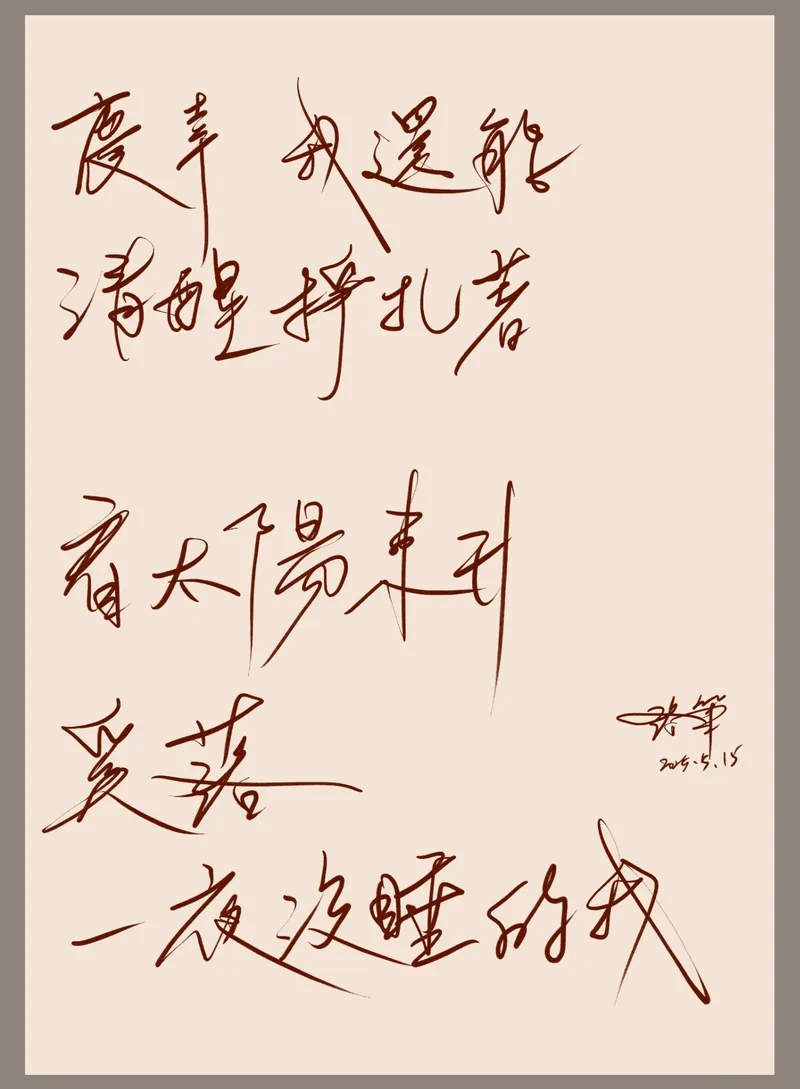 慶幸 我還能
清醒掙扎著
看太陽來到
奚落
一夜沒睡的我
2025.5.15